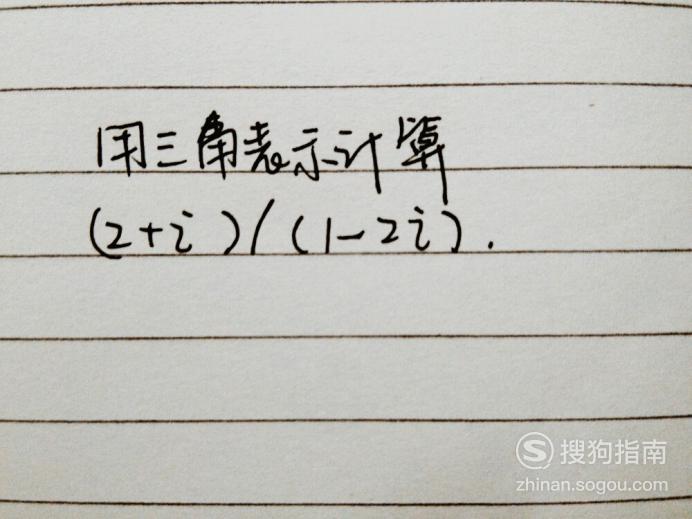 用三角表示计算
(2+i)/(1-2i).
搜狗指南
zhinan.sogou.com